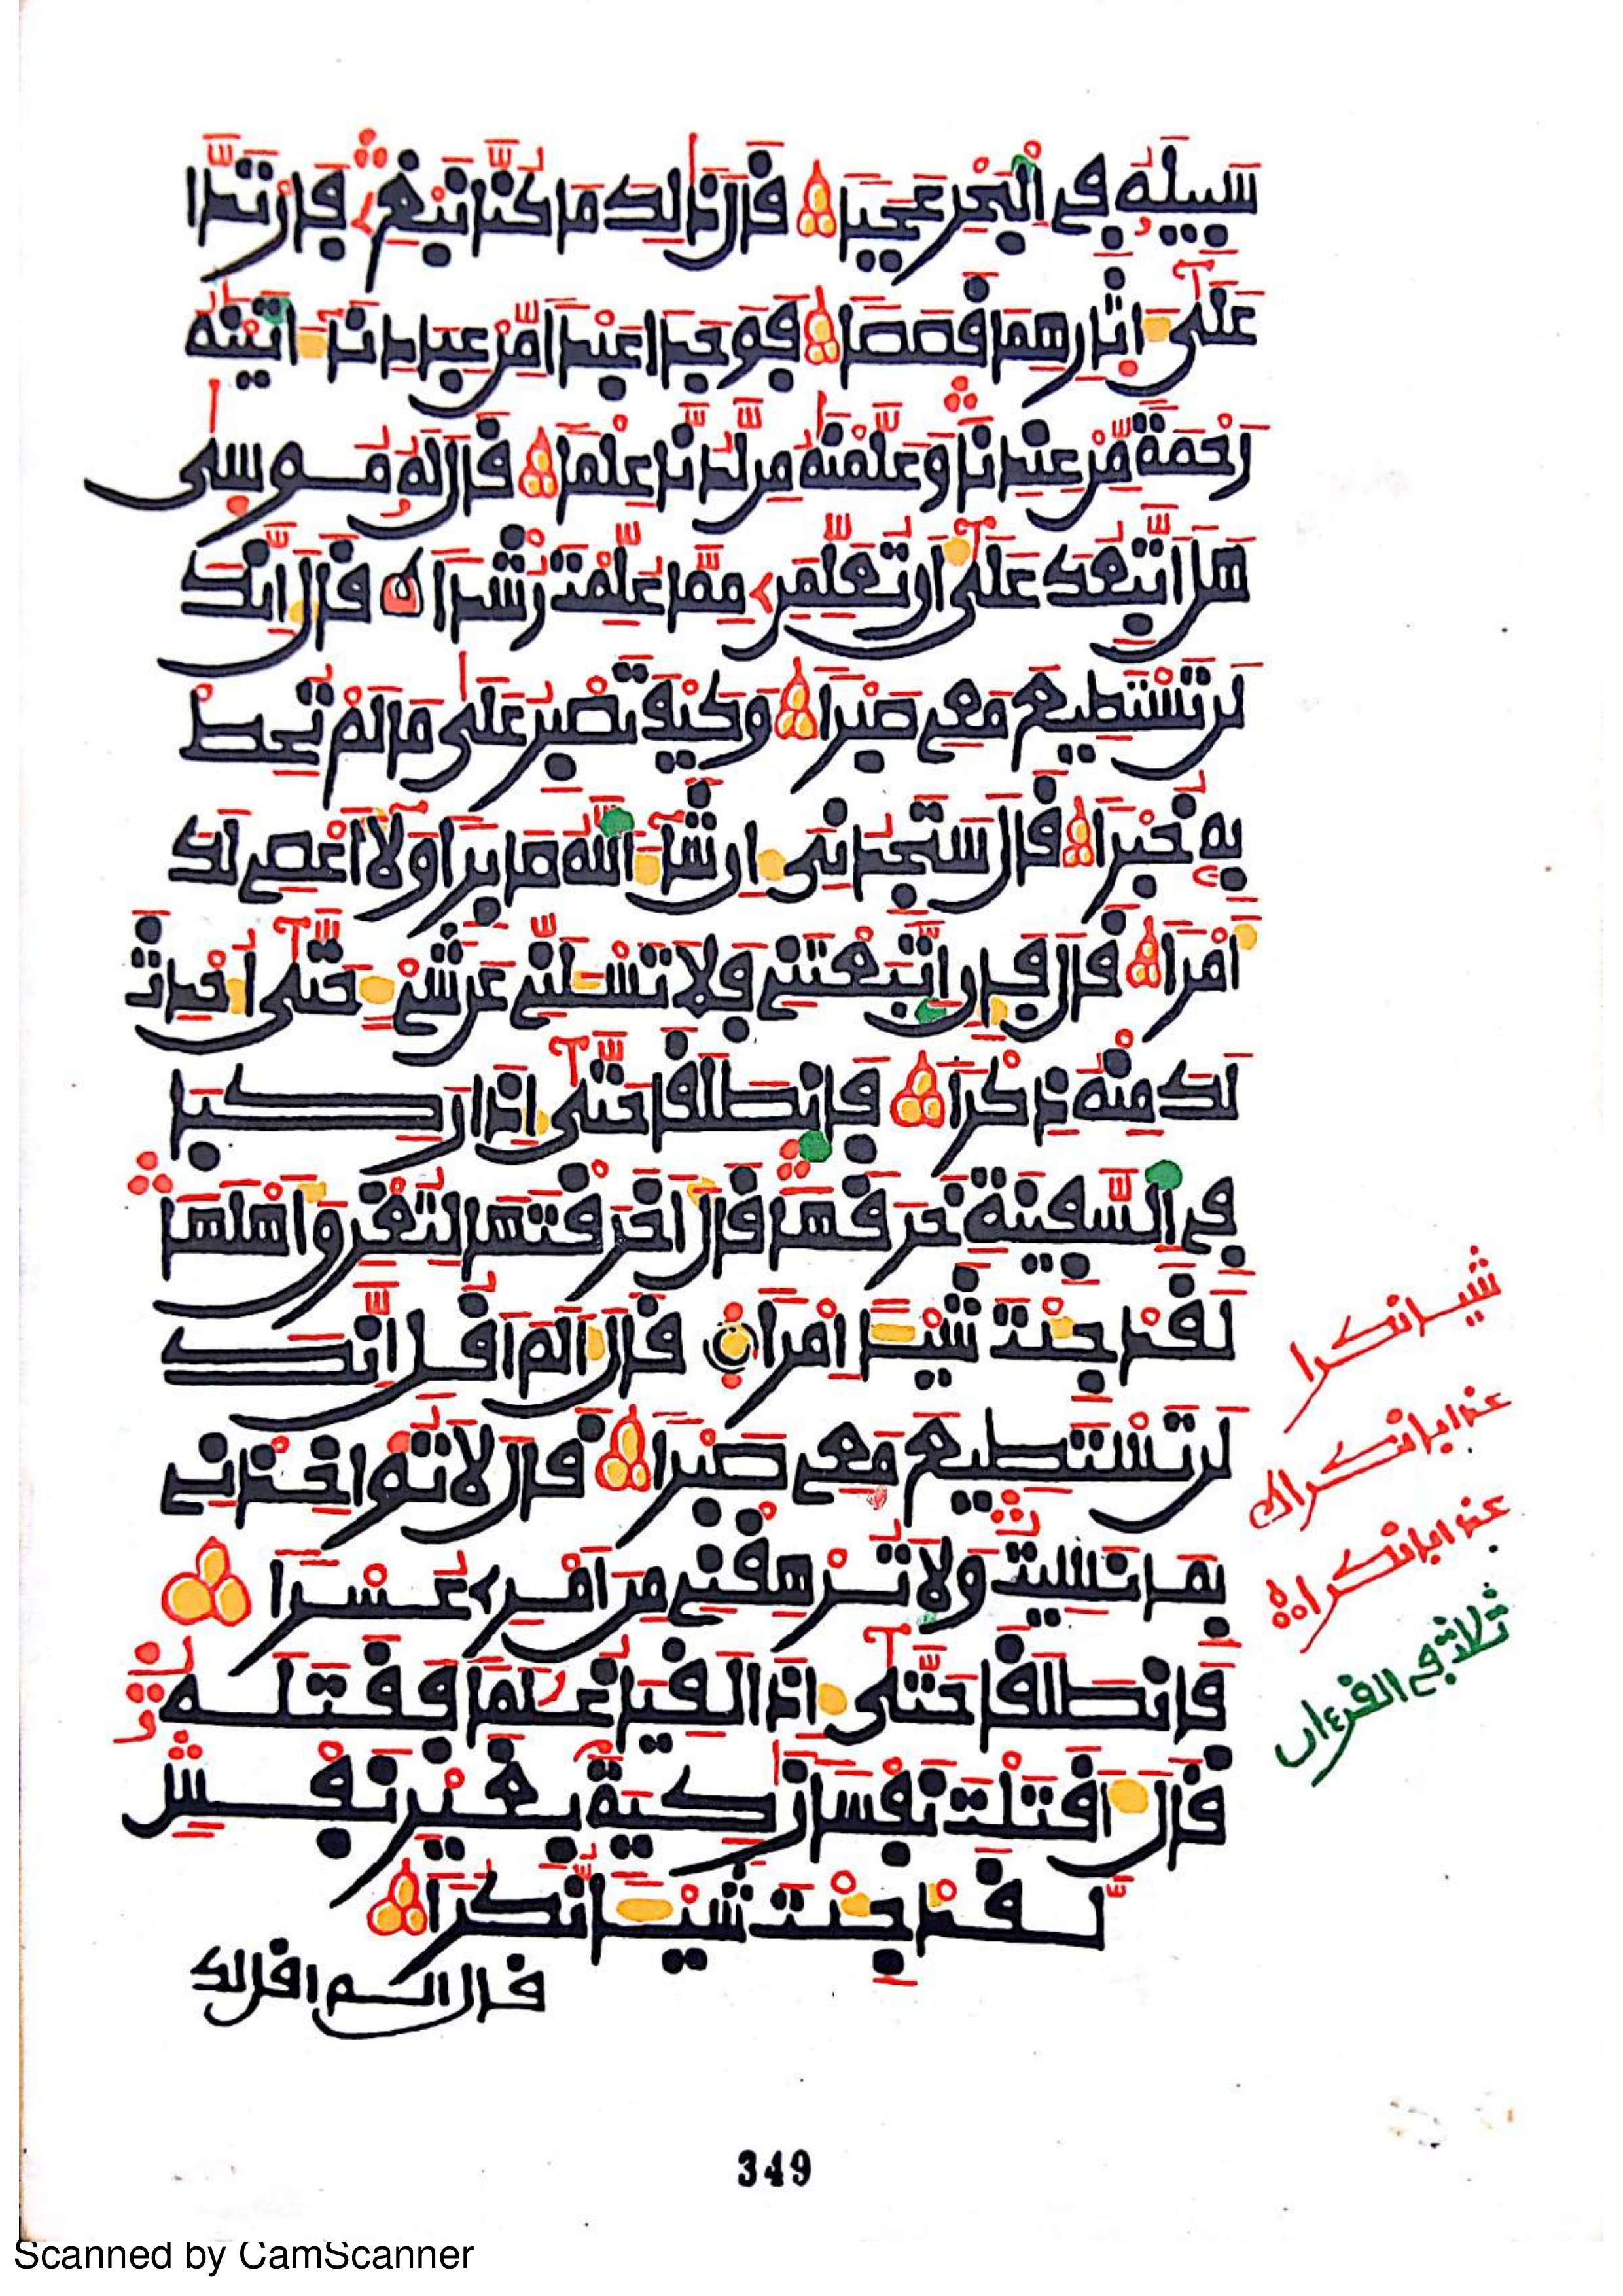 سَبِيلَهُۥ فِي اِ۬لْبَحْرِ عَجَباً قَالَ ذَٰلِكَ مَا كُنَّا نَبْغِۦ فَارْتَدَّا
عَلَىٰٓ ءَاثَارِهِمَا قَصَصاً فَوَجَدَا عَبْداً مِّنْ عِبَادِنَآ ءَاتَيْنَٰهُ
رَحْمَةً مِّنْ عِندِنَا وَعَلَّمْنَٰهُ مِن لَّدُنَّا عِلْماً قَالَ لَهُۥ مُوسَىٰ
هَلَ اَتَّبِعُكَ عَلَىٰٓ أَن تُعَلِّمَنِۦ مِمَّا عُلِّمْتَ رُشْداً قَالَ إِنَّكَ
لَن تَسْتَطِيعَ مَعِي صَبْراً وَكَيْفَ تَصْبِرُ عَلَىٰ مَا لَمْ تُحِطْ
بِهِۦ خُبْراً قَالَ سَتَجِدُنِيَ إِن شَآءَ اَ۬للَّهُ صَابِراً وَلَآ أَعْصِي لَكَ
أَمْراً قَالَ فَإِنِ اِ۪تَّبَعْتَنِي فَلَا تَسْـَٔلَنِّي عَن شَيْءٍ حَتَّىٰٓ أُحْدِثَ
لَكَ مِنْهُ ذِكْراً فَانطَلَقَا حَتَّىٰٓ إِذَا رَكِبَا
فِي اِ۬لسَّفِينَةِ خَرَقَهَا قَالَ أَخَرَقْتَهَا لِتُغْرِقَ أَهْلَهَا
لَقَدْ جِئْتَ شَيْـًٔا اِمْراً قَالَ أَلَمَ اَقُلِ اِنَّكَ
لَن تَسْتَطِيعَ مَعِي صَبْراً قَالَ لَا تُوَاخِذْنِي
بِمَا نَسِيتُ وَلَا تُرْهِقْنِي مِنَ اَمْرِي عُسْراً
فَانطَلَقَا حَتَّىٰٓ إِذَا لَقِيَا غُلَٰماً فَقَتَلَهُۥ
قَالَ أَقَتَلْتَ نَفْساً زَٰكِيَةَۢ بِغَيْرِ نَفْسٍ
لَّقَدْ جِئْتَ شَيْـًٔا نُّكُراً
قال الم اقل لك
شيا نكرا
عذابا نكرا
عذابا نكرا
ثلاث في القرءان
349
Scanned by CamScanner